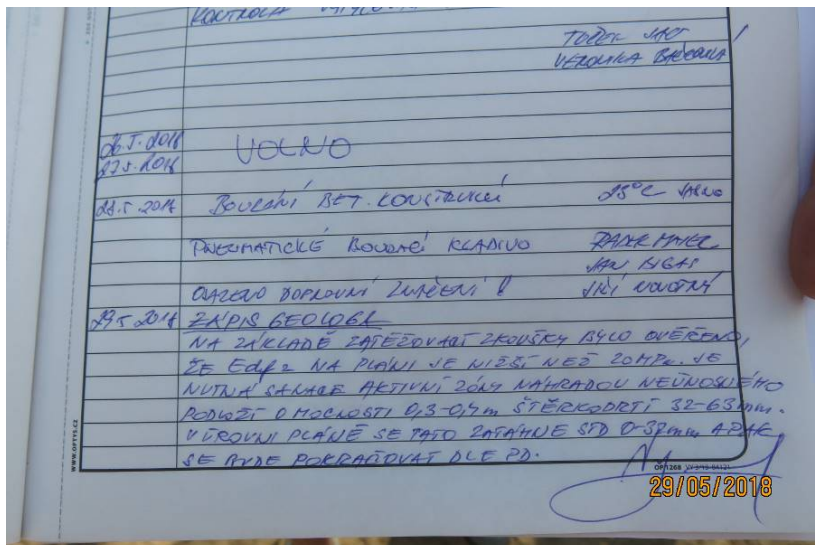 KONTROLA
VERONIKA
26.5.2018
27.5.2018 VOLNO
28.5.2018 BOURÁNÍ BET. KONSTRUKCÍ 25°C JASNO
PNEUMATICKÉ BOURACÍ KLADIVO RADEK
JAN
OSAZENO DOPRAVNÍ ZNAČENÍ ! JIŘÍ NOVOTNÝ
29.5.2018 ZÁPIS GEOLOGA
NA ZÁKLADĚ ZATĚŽOVACÍ ZKOUŠKY BYLO OVĚŘENO,
ŽE Edef2 NA PLÁNI JE NIŽŠÍ NEŽ 20MPa. JE
NUTNÁ SANACE AKTIVNÍ ZÓNY NÁHRADOU NEÚNOSNÉHO
PODLOŽÍ O MOCNOSTI 0,3-0,4m ŠTĚRKODRTÍ 32-63mm.
V ÚROVNI PLÁNĚ SE TATO ZATÁHNE ŠTD 0-32mm A PAK
SE BUDE POKRAČOVAT DLE PD.
WWW.OPTYS.CZ
OP 1268
29/05/2018